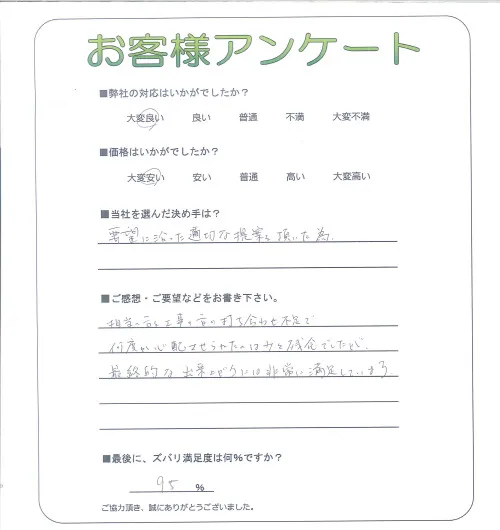 お客様アンケート
■弊社の対応はいかがでしたか？
大変良い 良い 普通 不満 大変不満
■価格はいかがでしたか？
大変安い 安い 普通 高い 大変高い
■当社を選んだ決め手は？
要望に沿った適切な提案を頂いた為。
■ご感想・ご要望などをお書き下さい。
担当の方と工事の方の打ち合わせ不足で
何度か心配させられたのはちと残念でしたが、
最終的な出来上がりには非常に満足しています。
■最後に、ズバリ満足度は何%ですか？
95 %
ご協力頂き、誠にありがとうございました。